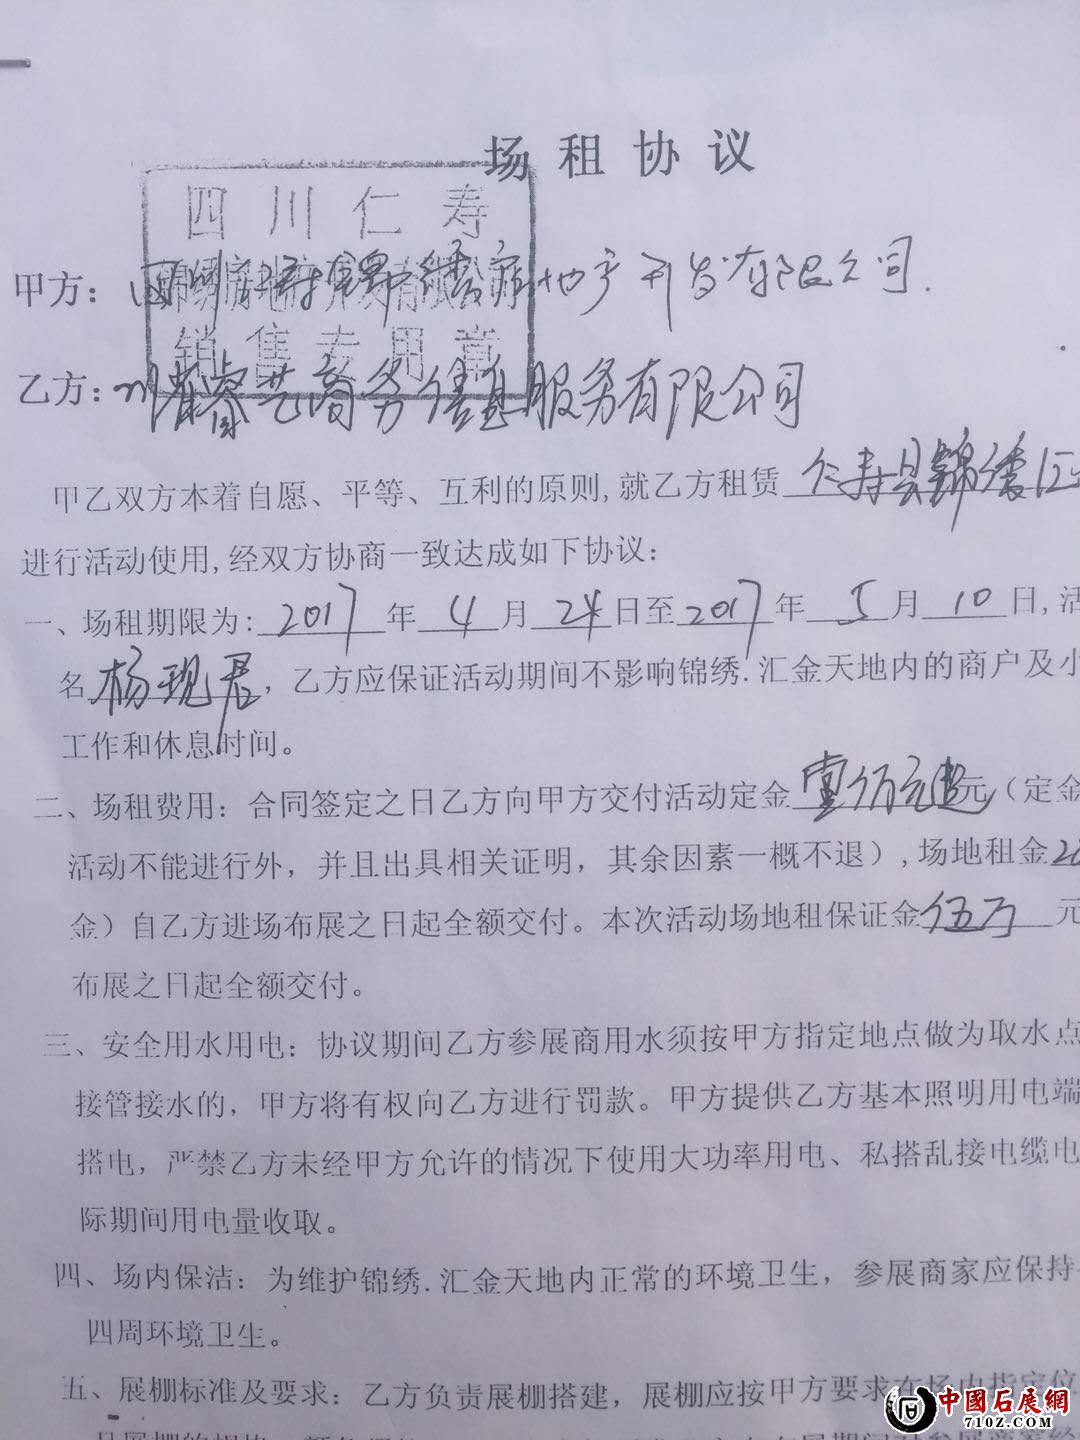 场租协议
四川仁寿
锦绣房地产开发有限公司
销售专用章
甲方：四川仁寿锦绣房地产开发有限公司.
乙方：川睿艺商务信息服务有限公司
甲乙双方本着自愿、平等、互利的原则,就乙方租赁 仁寿县锦绣汇
进行活动使用,经双方协商一致达成如下协议：
一、场租期限为: 2017 年 4 月 24 日至 2017 年 5 月 10 日,活
名 杨现君 ，乙方应保证活动期间不影响锦绣.汇金天地内的商户及小
工作和休息时间。
二、场租费用：合同签定之日乙方向甲方交付活动定金 壹佰元 元（定金
活动不能进行外，并且出具相关证明，其余因素一概不退）,场地租金
金）自乙方进场布展之日起全额交付。本次活动场地租保证金 伍万 元
布展之日起全额交付。
三、安全用水用电：协议期间乙方参展商用水须按甲方指定地点做为取水点
接管接水的，甲方将有权向乙方进行罚款。甲方提供乙方基本照明用电端
搭电，严禁乙方未经甲方允许的情况下使用大功率用电、私搭乱接电缆电
际期间用电量收取。
四、场内保洁：为维护锦绣.汇金天地内正常的环境卫生，参展商家应保持
四周环境卫生。
五、展棚标准及要求：乙方负责展棚搭建，展棚应按甲方要求在场内指定位
中國石展網
71OZ.COM